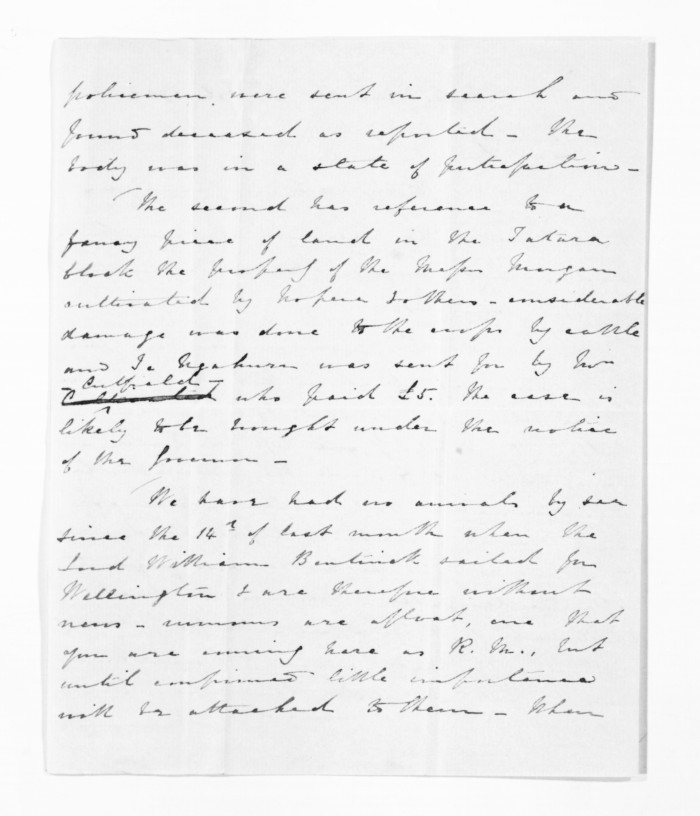 policeman were sent in search and
found deceased as reported – the
body was in a state of putrefaction –
The second has reference to a
fancy piece of land in the Tatara
block the property of the Messrs Morgan
cultivated by Hopera & others – considerable
damage was done to the crops by cattle
and Te Ngahuru was sent for by
Cutfield –
who paid £5. The case is
likely to be brought under the notice
of the Governor –
We have had no arrivals by sea
since the 14th of last month when the
Lord William Bentinck sailed for
Wellington & are therefore without
news – rumours are afloat, one that
you are coming here as R.M., but
until confirmed little importance
will be attached to them – When